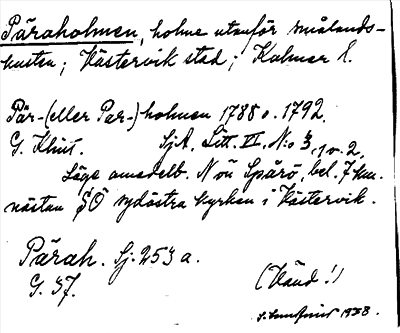 Päraholmen, holme utanför smålands-
kusten; Västervik stad; Kalmar l.
Pär-(eller Par-)holmen 1788 o. 1792.
G. Klint. SjA, Litt. VI, N:o 3, 1 o. 2.
Läge omedelb. N ön Spårö, bel. 7 km.
nästan SO sydöstra kyrkan i Västervik.
Pärah. Sj. 253 a.
G. 37.
(Vänd!)
1938.